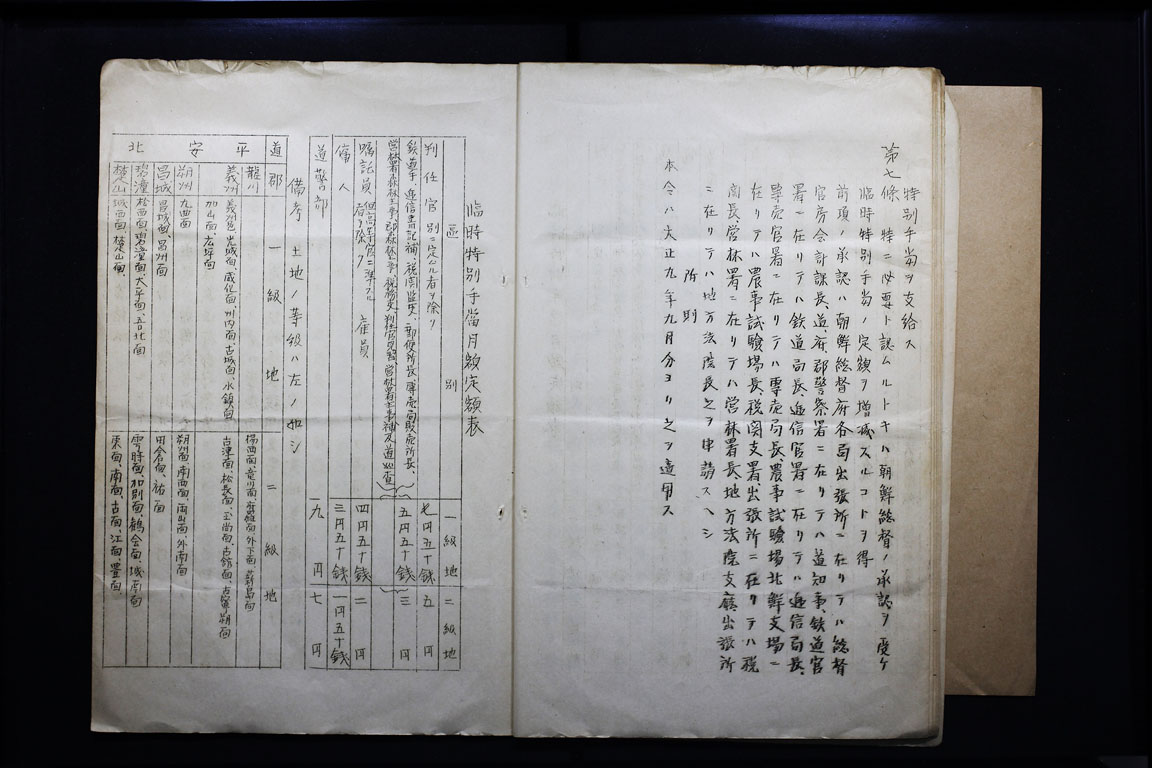 特別手当ヲ支給ス
第七條 特ニ必要ト認ムルトキハ朝鮮総督ノ承認ヲ受ケ
臨時特別手当ノ定額ヲ増減スルコトヲ得
前項ノ承認ハ朝鮮総督府各局出張所ニ在リテハ総督
官房会計課長、道府郡警察署ニ在リテハ道知事、鉄道官
署ニ在リテハ鉄道局長、逓信官署ニ在リテハ逓信局長、
専売官署ニ在リテハ専売局長、農事試験場北鮮支場ニ
在リテハ農事試験場長、税関支署、出張所ニ在リテハ税
関長、営林署ニ在リテハ営林署長、地方法院支廳出張所
ニ在リテハ地方法院長之ヲ申請スヘシ
附則
本令ハ大正九年九月分ヨリ之ヲ適用ス
臨時特別手當月額定額表
區別 一級地 二級地
判任官 別ニ定ムル者ヲ除ク 七円五十銭 五円
鉄道手、逓信書記補、税関監吏、郵便所長、専売局販売所長、
営林署森林主事、郡森林主事、税務吏、判任官見習、営林署主事補及道巡査 五円五十銭 三円
嘱託員 但高等官ニ準スル者ヲ除ク 雇員 四円五十銭 二円
傭人 三円五十銭 一円五十銭
道警部 九円 七円
備考 土地ノ等級ハ左ノ如シ
道 郡 一級地 二級地
平安北
龍川 楊西面、
義州 義州邑、光城面、威化面、州内面、古城面、水鎮面、
加山面、広坪面 古津面、松長面、玉尚面、古館面、古寧朔面
朔州 九曲面 朔州面、南西面、両山面、外南面
昌城 昌城面、昌州面 田倉面、祐面
碧潼 松西面、碧潼面、大平面、吾北面 雲時面、加別面、鶴会面、城南面
楚山 城面面、楚山面、 東面、南面、古面、江面、豊面、